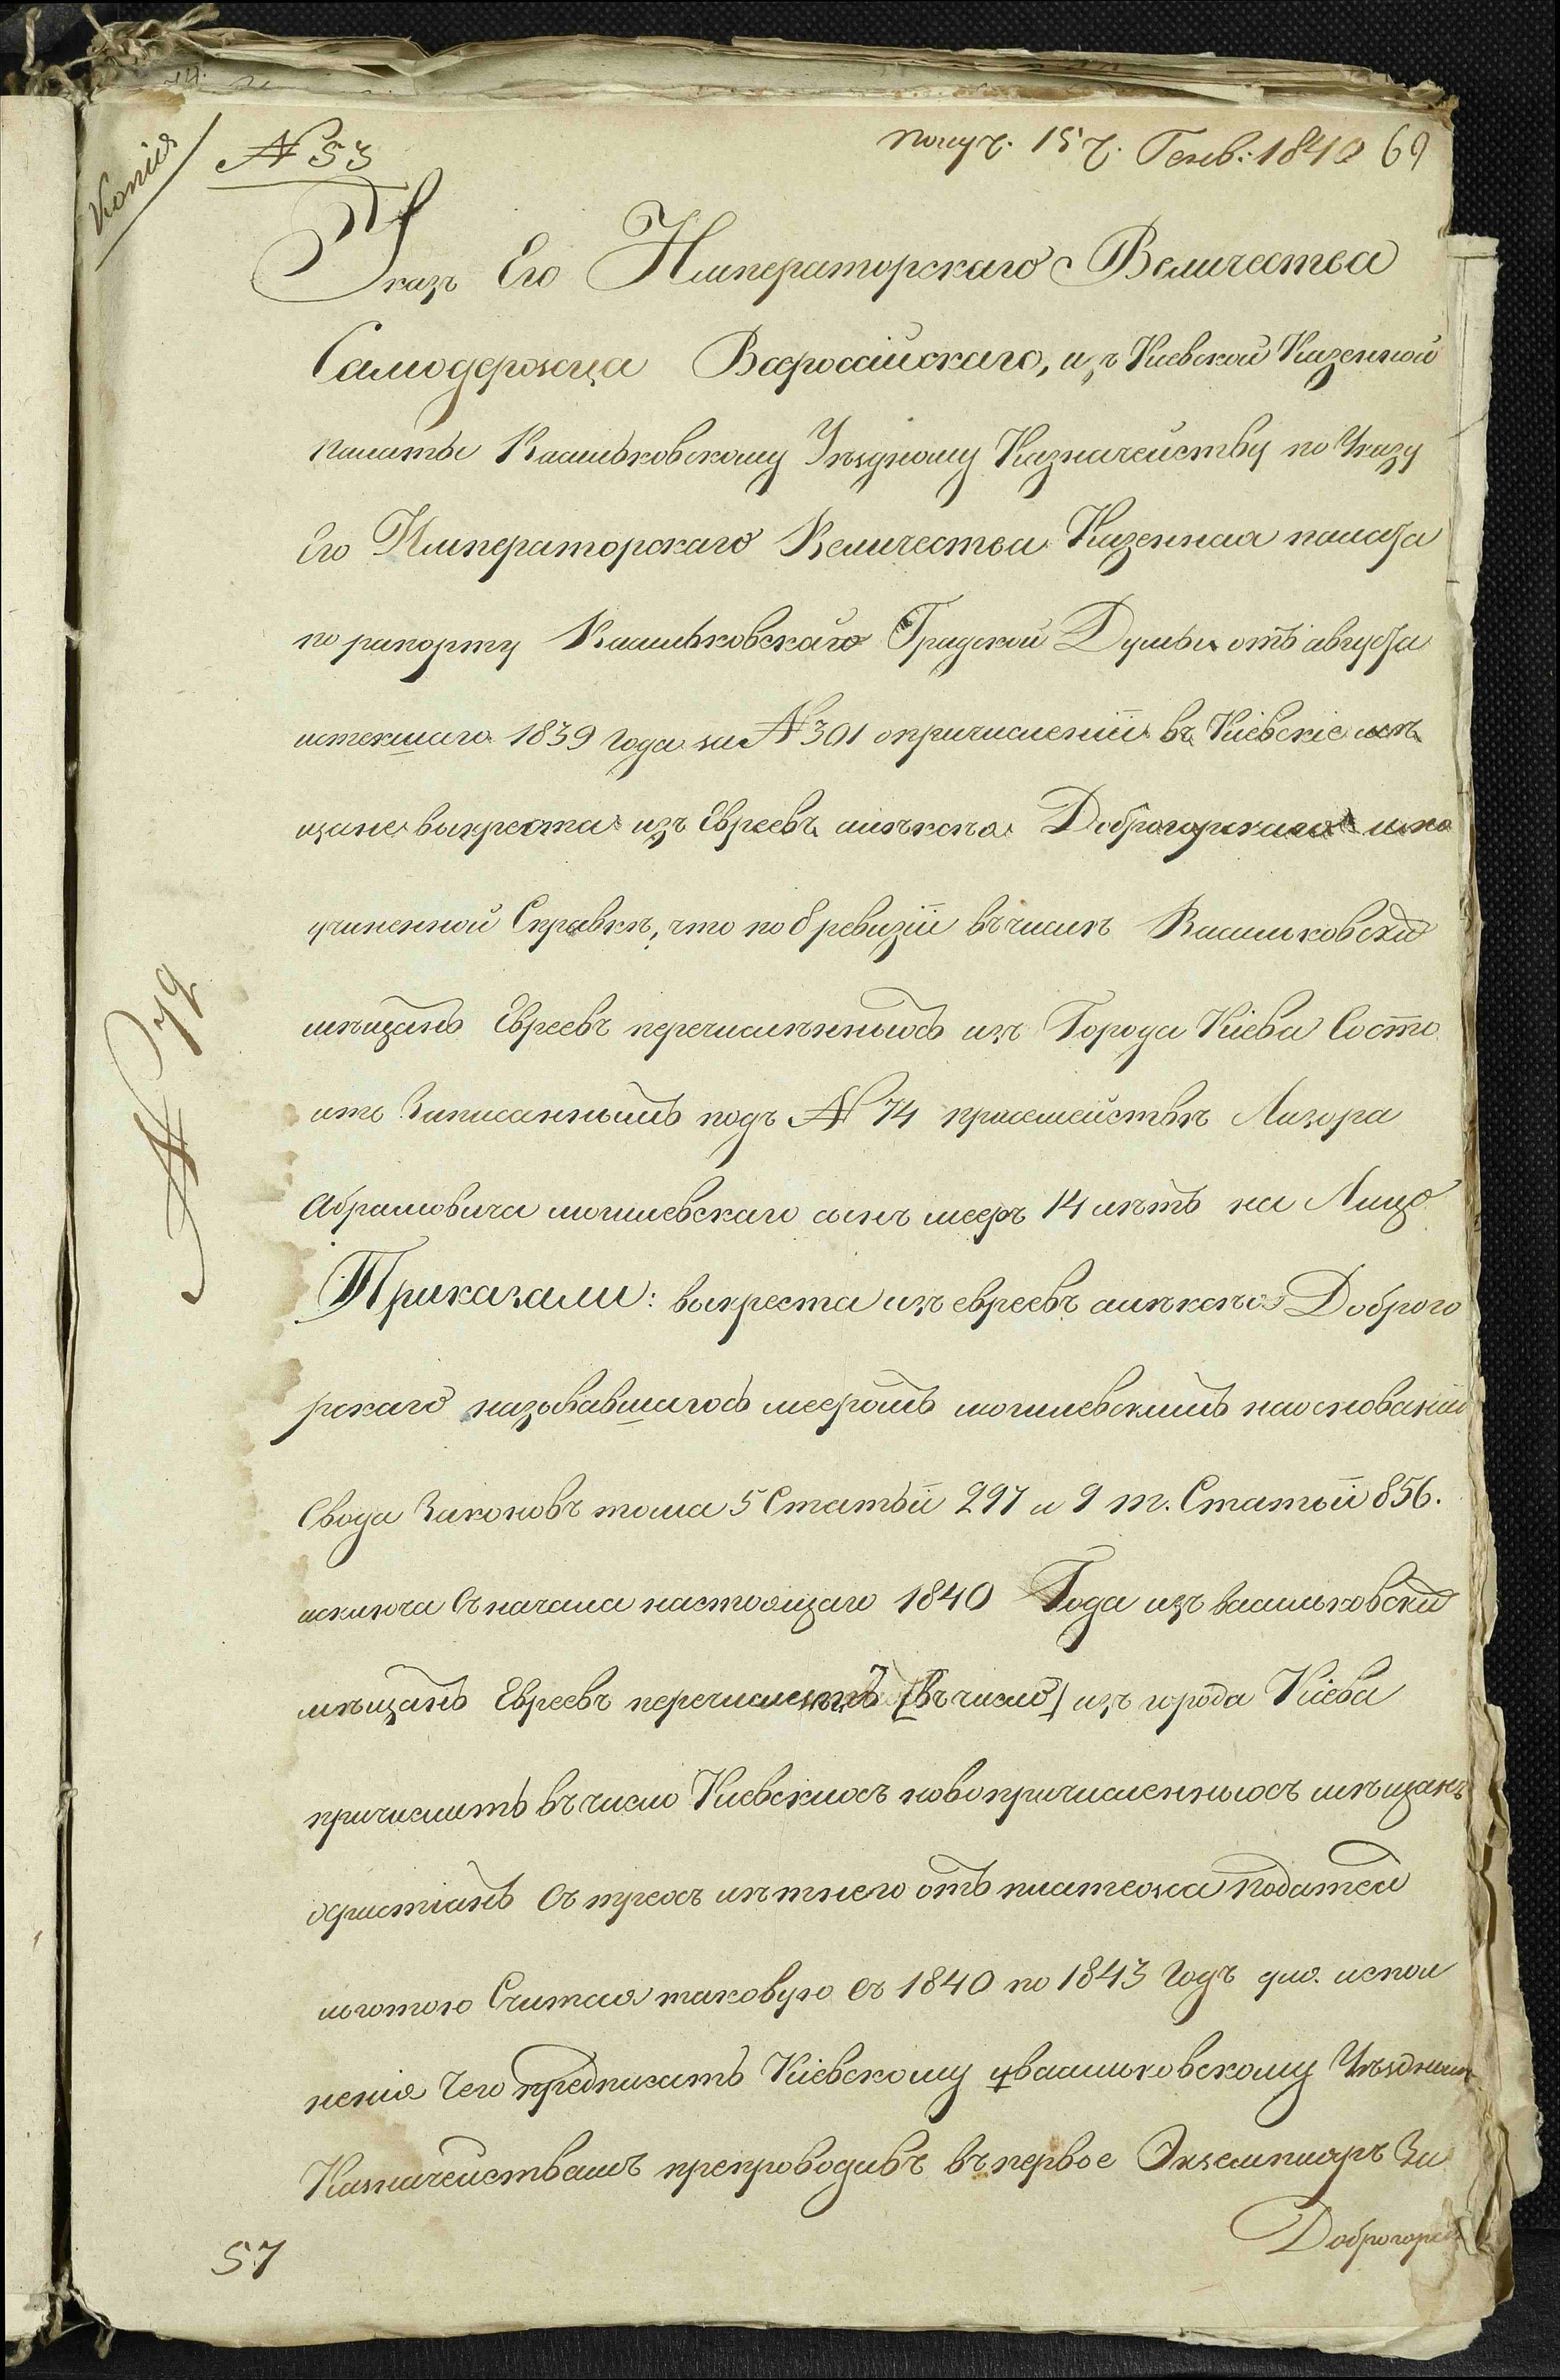 Копія
№ 53
получ. 15 г. Генв: 1840 69
Указъ Его Императорскаго Величества
Самодержца Всероссійскаго, изъ Киевской Казенной
палаты Васильковскому Уѣздному Казначейству по Указу
Его Императорскаго Величества Казенная палата
по рапорту Васильковскаго Градской Думы отъ августа
истекшаго 1839 года за № 301 опричисленіи въ Кіевскіе мѣ
щане выкреста изъ Евреевъ алѣксѣя Доброгорскаго и по
учиненной Справкѣ, что по 8 ревизіи въ числѣ Васильковски
мѣщанъ Евреевъ перечислѣнныхъ изъ Города Кіева Состо
итъ Записаннымъ подъ № 74 присемействѣ Лизора
Абрамовича могилевскаго сынъ мееръ 14 лѣтъ на Лицо
Приказали: выкреста изъ евреевъ алѣксѣя Доброго
рскаго называвшагось мееромъ могилевскимъ наоснованіи
Свода Законовъ тома 5 Статьи 297 и 9 т. Статьи 856.
исключа съ начала настоящаго 1840 Года изъ васильковски
мѣщанъ Евреевъ перечислен [въ число] изъ города Кіева
причислить въ число Киевскихъ новопричисленныхъ мѣщанъ
христіанъ съ трехъ лѣтнею отъ платежа податей
льготою Считая таковую съ 1840 по 1843 годъ для. испол
ненія чего предписать Кіевскому и васильковскому Уѣзднымъ
Казначействамъ препроводивъ въ первое Экземпляръ За
Доброгорск
№ 79
57